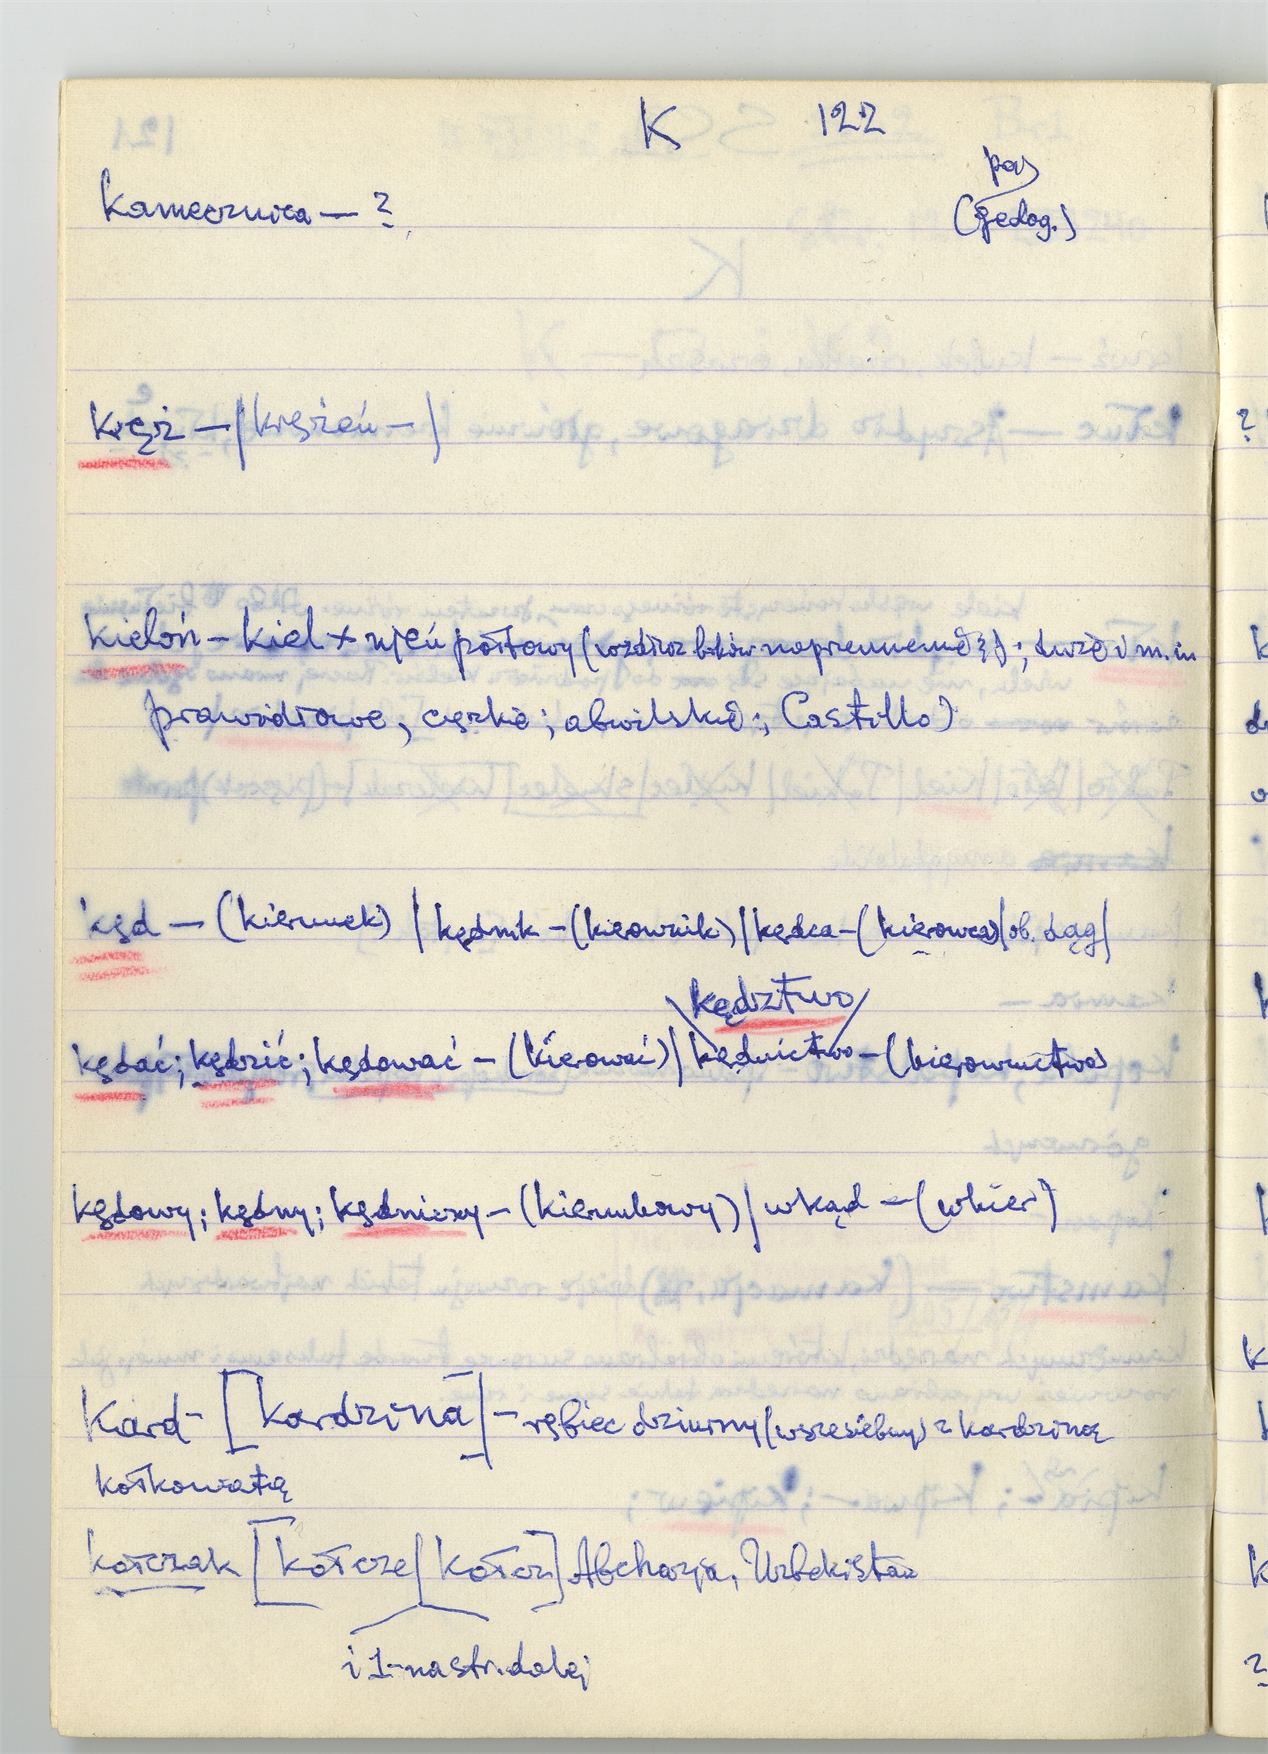 K 122
pas
kamecznica — ? (gedog.)
kręż — | krężeń — |
kieloń — kiel + rdzeń połtowy (wzdłoż boków naprzemienne); m.in
prawidłowe, ciężkie; abwilskie; Castillo)
kęd — (kierunek) | kędnik — (kierownik) | kędca — (kierowca) | ob. dąg |
kędztwo
kędać; kędzić; kędować — (kierować) | kędnictwo — (kierownictwo)
kędowy; kędny; kędniczy — (kierunkowy) | wkąd — (wkier)
Kard — [kardzina] — rębiec dziurny (wszesiebny) z kardziną
kołkowatą
kołczak [kołcze | kołcz] Abchazja, Uzbekistan
i 1-na str. dalej